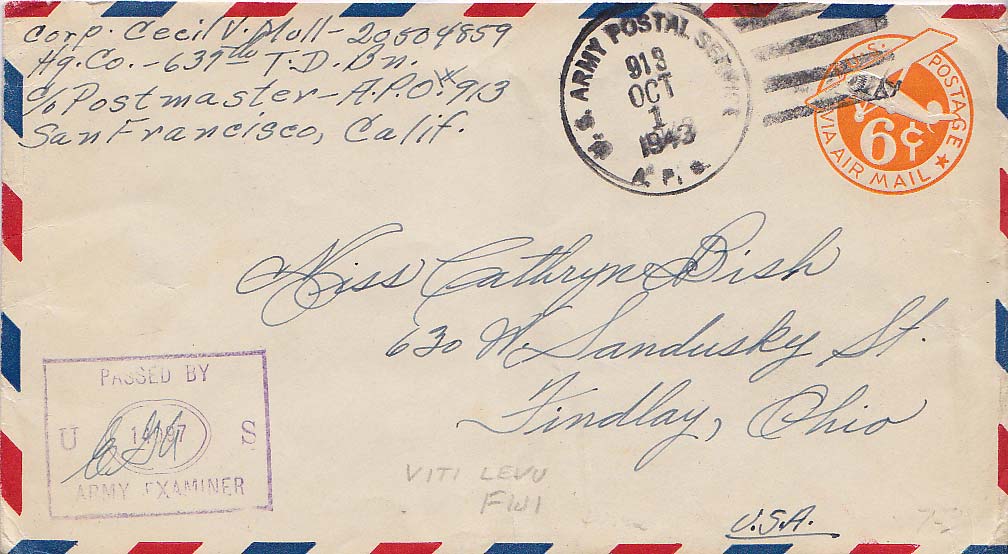 Corp. Cecil V. Mull - 20504859
Hq. Co. - 637th T.D. Bn.
c/o Postmaster - A.P.O.# 913
San Francisco, Calif.
U. S. ARMY POSTAL SERVICE
913
OCT
1
1943
A. P. S.
U.S. POSTAGE
6¢
VIA AIR MAIL
Miss Cathryn Bish
630 W. Sandusky St.
Findlay, Ohio
U.S.A.
PASSED BY
U S
ARMY EXAMINER
VITI LEVU
FIJI